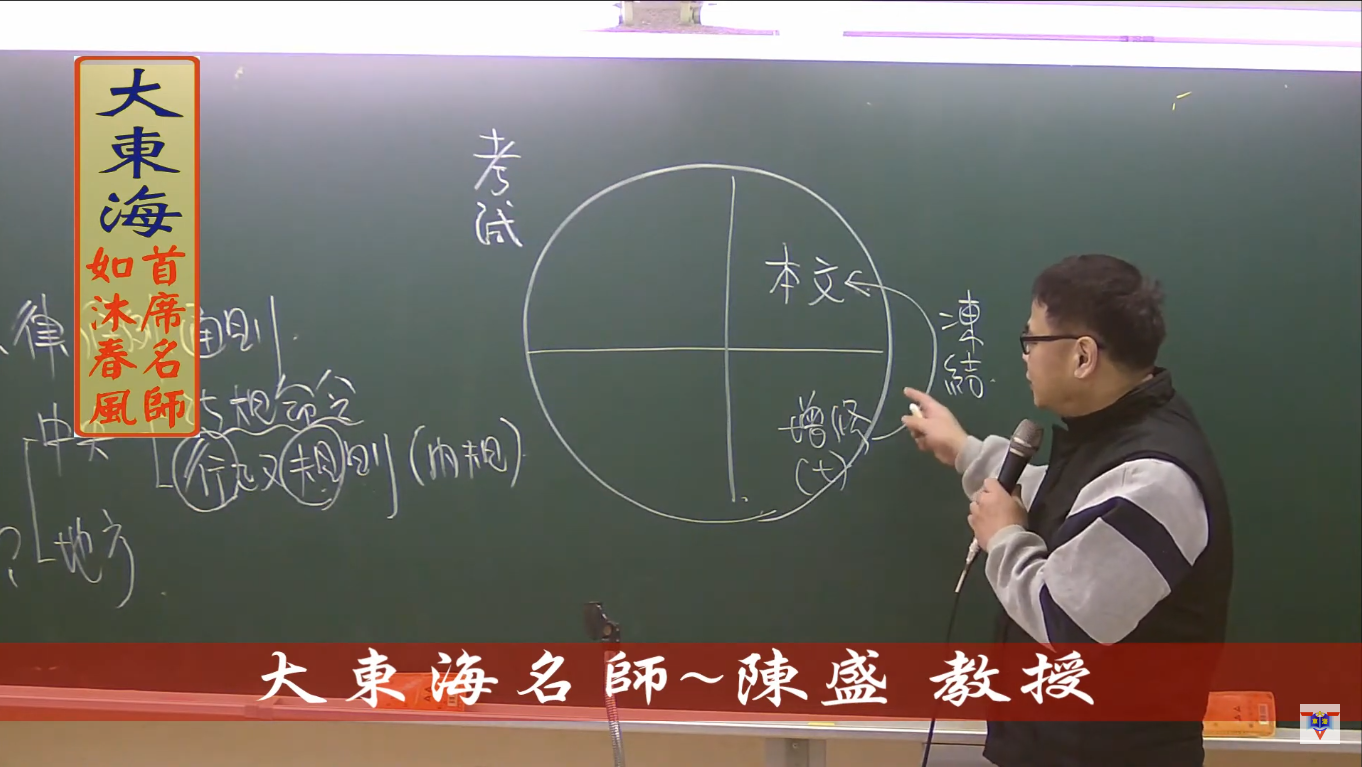 大東海
首席名師
如沐春風
考試
本文
凍結
增修
(十)
律
則
中央
行政規則(內規)
地方
大東海名師~陳盛 教授